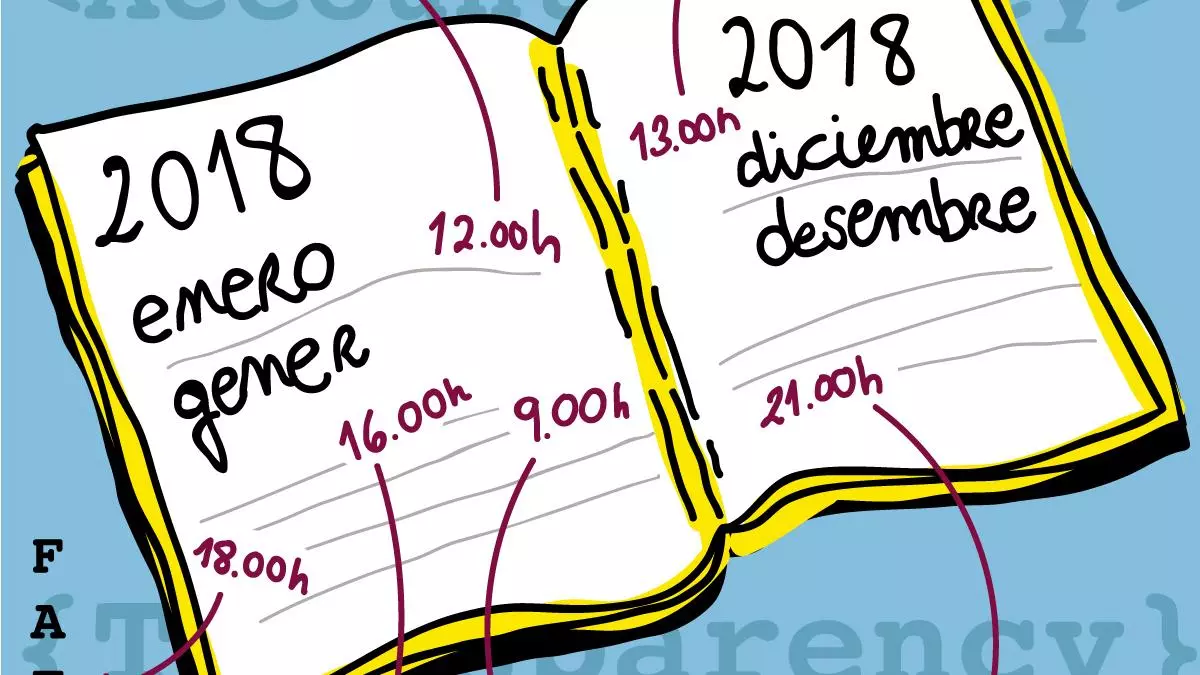 2018
enero
gener
12.00h
16.00h
9.00h
18.00h
2018
13.00h
diciembre
desembre
21.00h
F
A